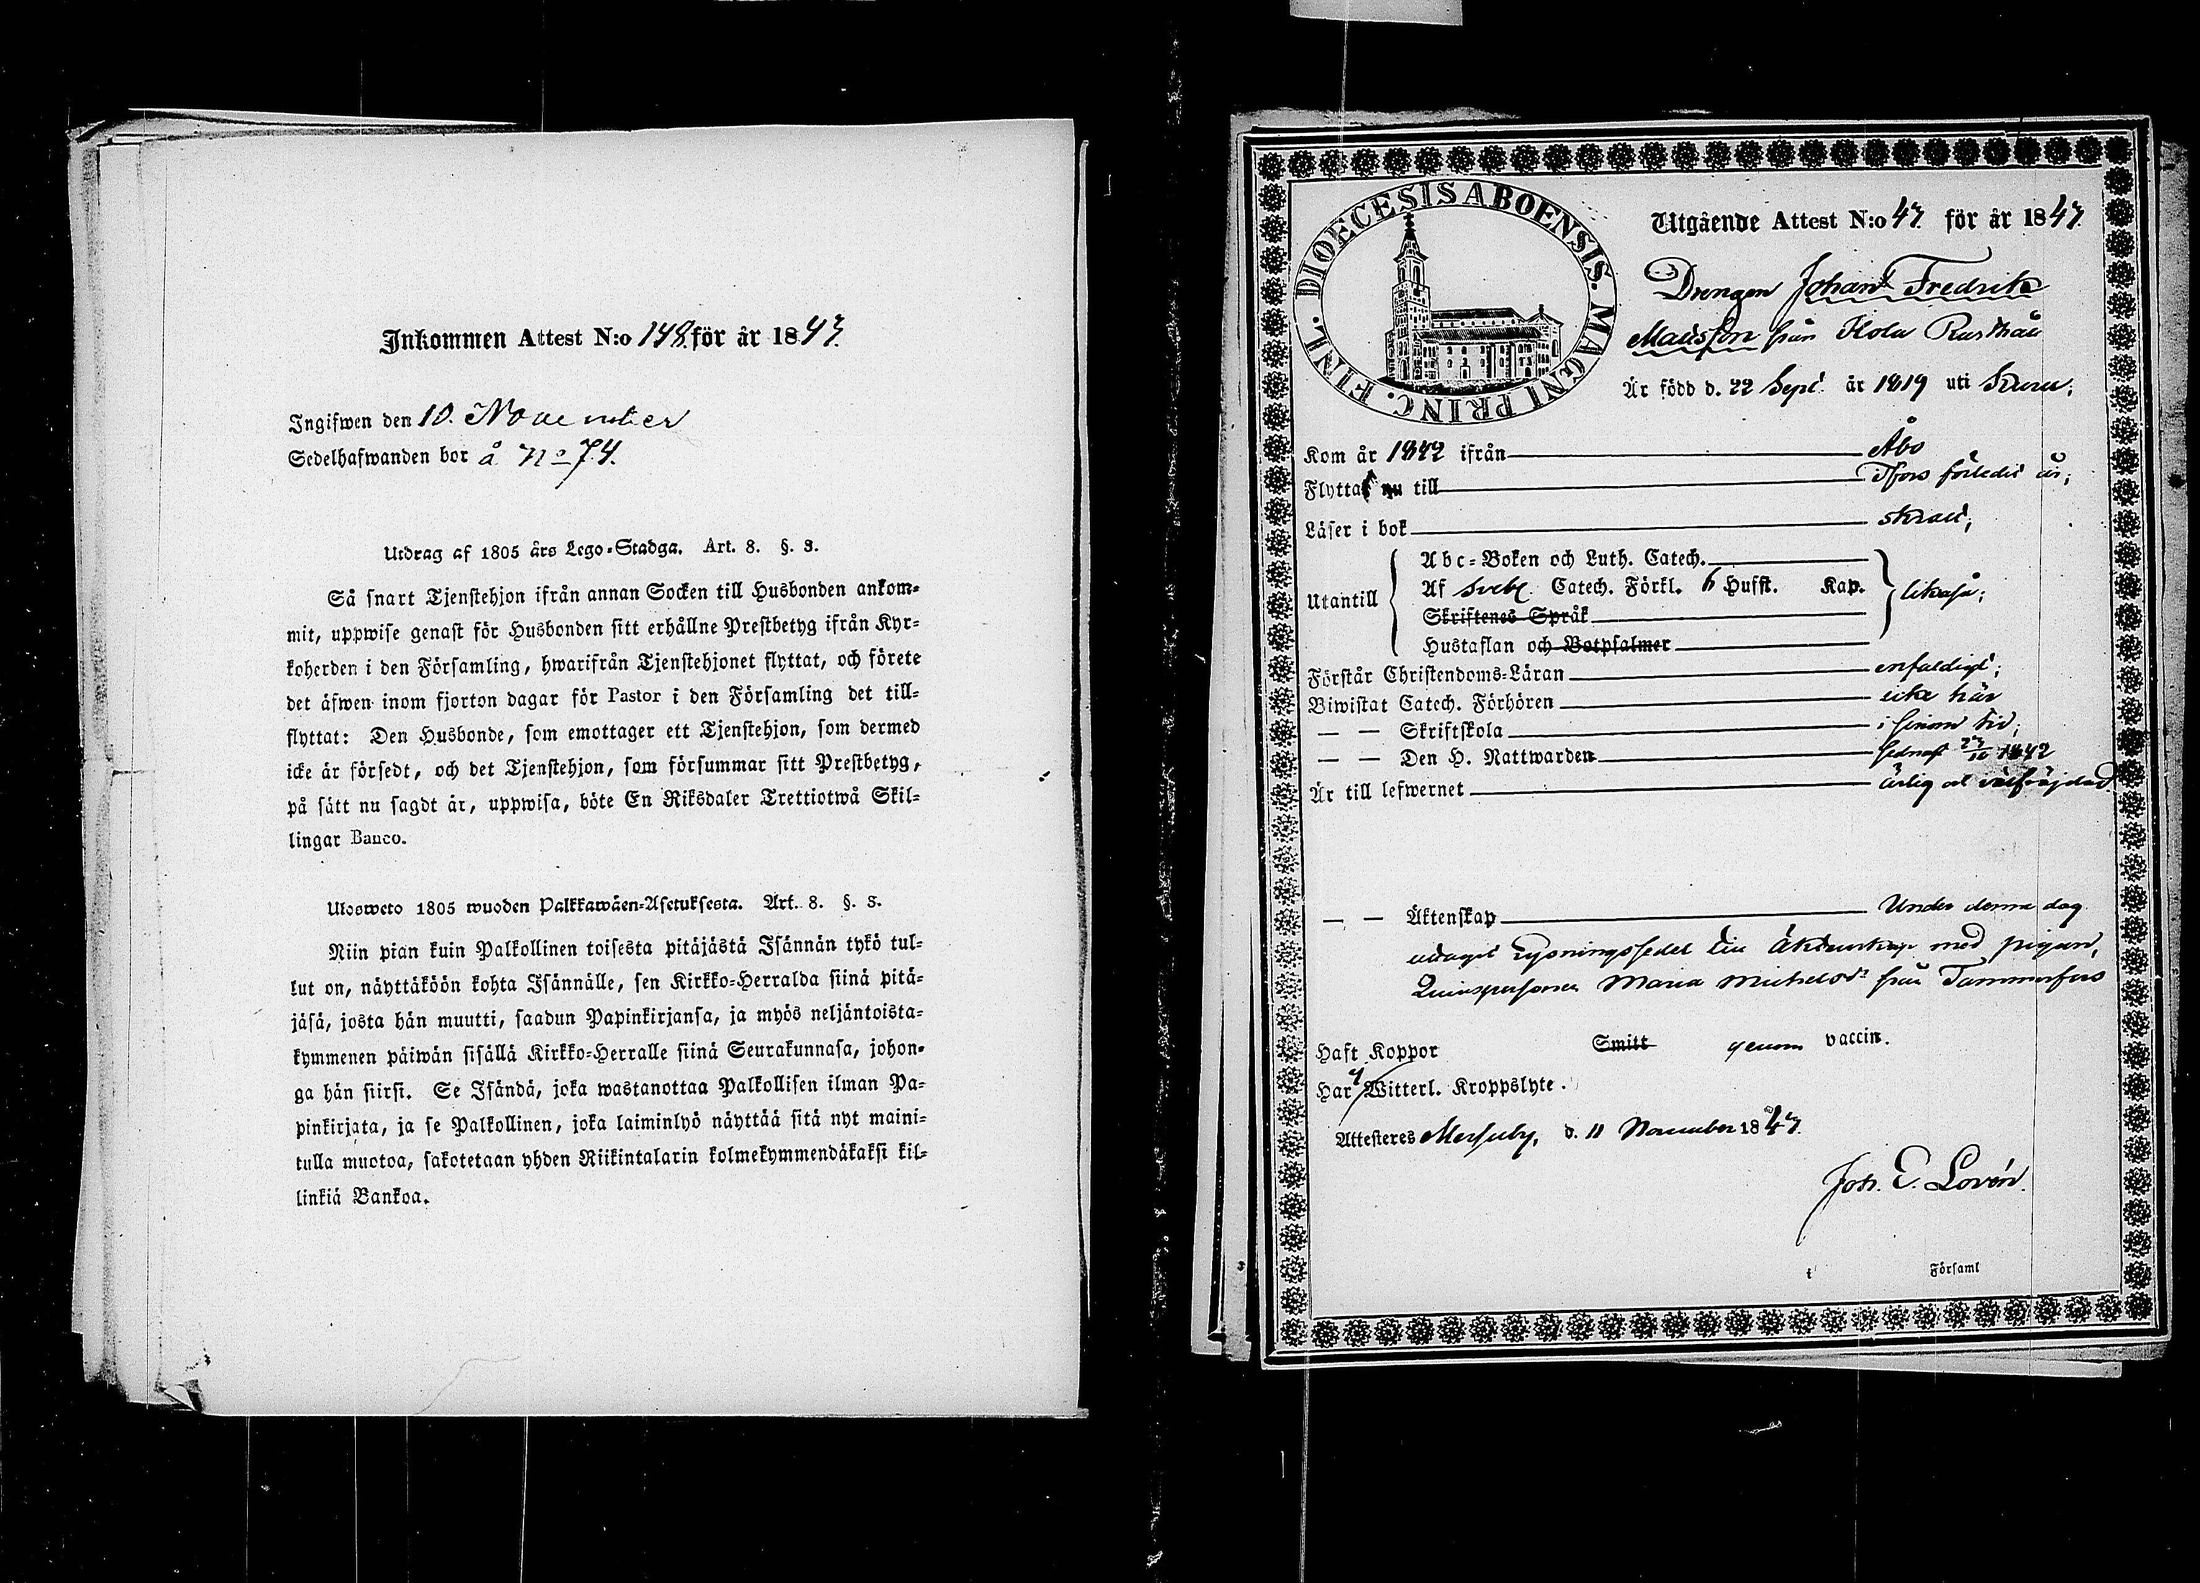 Inkommen Attest N:o 148 för år 1843.
Ingifwen den 10. November
Sedelhafwanden bor å No 74.
Utdrag af 1805 års Lego-Stadga. Art. 8. §. 3.
Så snart Tjenstehjon ifrån annan Socken till Husbonden ankom-
mit, uppwise genast för Husbonden sitt erhållne Prestbetyg ifrån Kyr-
koherden i den Församling, hwarifrån Tjenstehjonet flyttat, och förete
det äfwen inom fjorton dagar för Pastor i den Församling det till-
flyttat: Den Husbonde, som emottager ett Tjenstehjon, som dermed
icke är försedt, och det Tjenstehjon, som försummar sitt Prestbetyg,
på sätt nu sagdt är, uppwisa, böte En Riksdaler Trettiotwå Skil-
lingar Banco.
Ulosweto 1805 wuoden Palkkawäen-Asetuksesta. Art. 8. §. 3.
Niin pian kuin Palkollinen toisesta pitäjästä Isännän tykö tul-
lut on, näyttäköön kohta Isännälle, sen Kirkko-Herralda siinä pitä-
jäsä, josta hän muutti, saadun Papinkirjansa, ja myös neljäntoista-
kymmenen päiwän sisällä Kirkko-Herralle siinä Seurakunnasa, johon-
ga hän siirsi. Se Isändä, joka wastanottaa Palkollisen ilman Pa-
pinkirjata, ja se Palkollinen, joka laiminlyö näyttää sitä nyt maini-
tulla muotoa, sakotetaan yhden Riikintalarin kolmekymmendäkaksi kil-
linkiä Bankoa.
DIOECESIS ABOENSIS. MAGNI PRINC. FINL.
Utgående Attest N:o 43 för år 1843
Drengen Johan Fredrik
Matisson från Hola Rusthåll
Är född d. 22 Sept år 1819 uti Kuru;
Kom år 1842 ifrån Åbo
Flyttat nu till Tfors förledit år;
Läser i bok
Abc-Boken och Luth. Catech.
Utantill Af Sveb. Catech. Förkl. 6 Hufst. Kap. likaså;
Skriftenes Språk
Hustaflan och Botpsalmer
Förstår Christendoms-Läran enfaldigt;
Biwistat Catech. Förhören icke här
— — Skriftskola i sinom tid;
— — Den H. Nattwarden sednast 23/10 1842
Är till lefwernet ärlig och välfräjdad
— — Äktenskap Under denna dag
uttagit Lysningssedel till Äktenskap med pigan,
Qvinspersonen Maria Michelsdr från Tammerfors
Haft Koppor Smitt genom vaccin.
Har Witterl. Kroppslyte.
Attesteres Messuby, d. 11 November 1843.
Joh. E. Lovén.
i Församl